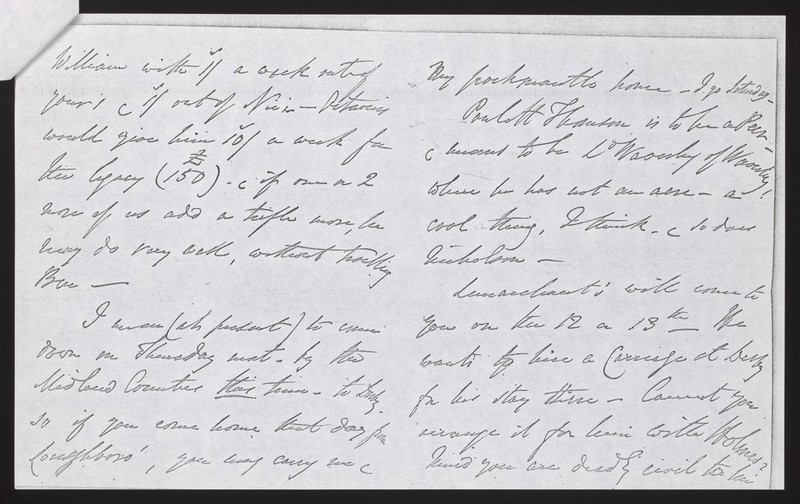 William with 5/ a week out of
yours & 5/ out of Nix's - Octavius
would give him 10/ a week for
the legacy (£150) - & if one or 2
more of us add a trifle more, he
may do very well, without
Box —
I mean (at present) to come
down on Thursday next - by the
Midland Counties this time - to Derby
so if you come home that day from
Loughboro', you may carry me &
my portmanteau home - I go Saturday -
Poulett Thomson is to be a Peer -
& means to be Ld Waverley of Waverley!
where he has not an acre - a
cool thing, I think - & so does
Nicholson —
Lemarchant's will come to
you on the 12 or 13th - He
wants to hire a Carriage at Derby
for his stay there - Cannot you
arrange it for him with Holmes?
Mind you are deadly civil to him